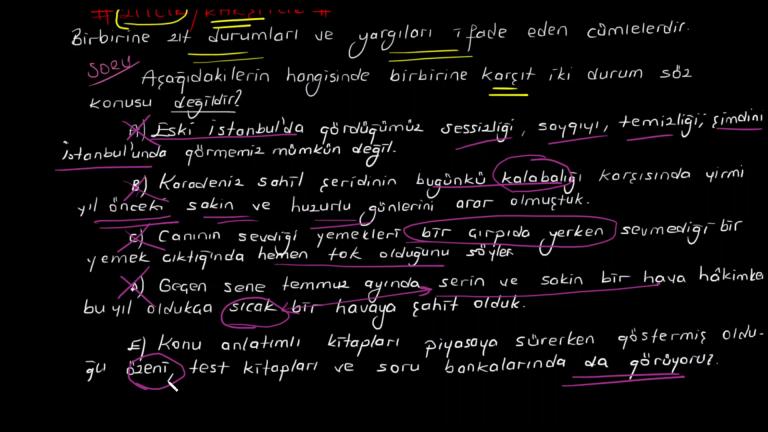 # ZITLIK / KARŞITLIK #
Birbirine zıt durumları ve yargıları ifade eden cümlelerdir.
SORU
Aşağıdakilerin hangisinde birbirine karşıt iki durum söz
konusu değildir?
A) Eski İstanbul'da gördüğümüz sessizliği, saygıyı, temizliği, şimdini
İstanbul'unda görmemiz mümkün değil.
B) Karadeniz sahil şeridinin bugünkü kalabalığı karşısında yirmi
yıl önceki sakin ve huzurlu günlerini arar olmuştuk.
C) Canının sevdiği yemekleri bir çırpıda yerken sevmediği bir
yemek çıktığında hemen tok olduğunu söyler
D) Geçen sene temmuz ayında serin ve sakin bir hava hâkimke
bu yıl oldukça sıcak bir havaya şahit olduk.
E) Konu anlatımlı kitapları piyasaya sürerken göstermiş oldu-
ğu özeni, test kitapları ve soru bankalarında da görüyoruz.